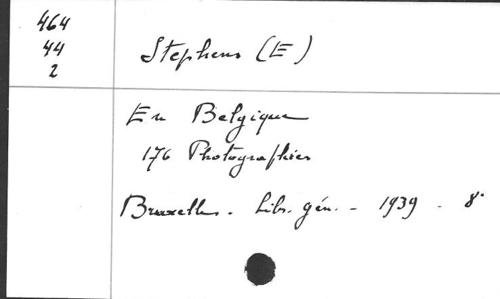 464
44
2
Stephens (E)
En Belgique
176 Photographies
Bruxelles. Libr. gén. - 1939 - 8°